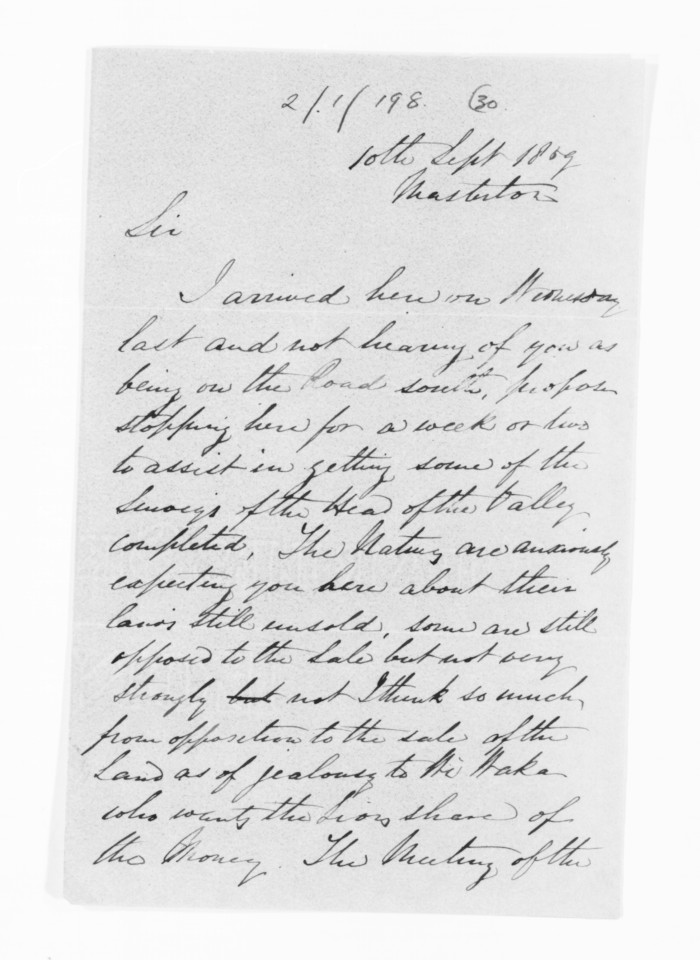 2/.1/198. (30.
10th Sept 1859
Masterton
Sir
I arrived here on Wednesday
last and not hearing of you as
being on the Road south, propose
stopping here for a week or two
to assist in getting some of the
Surveys of the Head of the Valley
completed, The Natives are anxiously
expecting you here about their
lands still unsold, some are still
opposed to the Sale but not very
strongly but not I think so much
from opposition to the sale of the
Land as of jealousy to Wi Waka
who wants the Lions share of
the Money. The Meeting of the